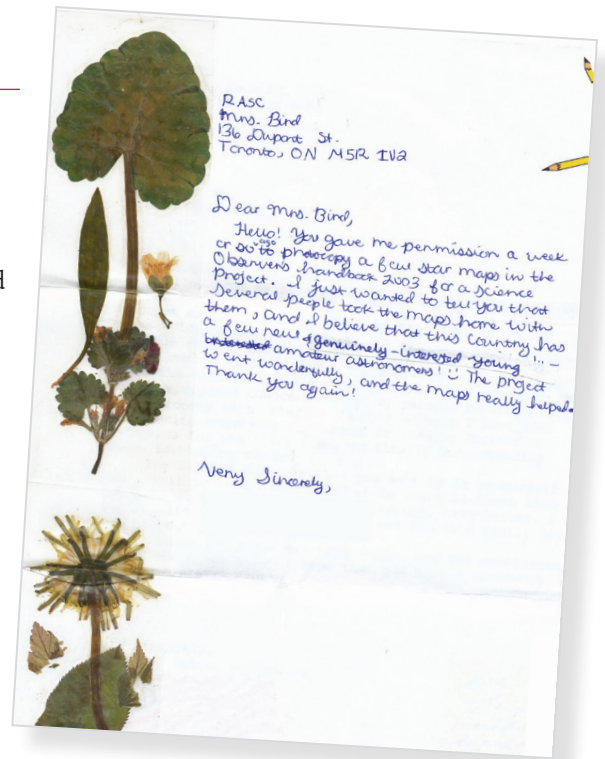 d
RASC
Mrs. Bird
136 Dupont St.
Toronto, ON M5R 1V2
Dear Mrs. Bird,
Hello! You gave me permission a week
or so ago to photocopy a few star maps in the
Observer's handbook 2003 for a science
project. I just wanted to tell you that
several people took the maps home with
them, and I believe that this Country has
a few new & genuinely-interested young
amateur astronomers! The project
went wonderfully, and the maps really helped.
Thank you again!
Very Sincerely,